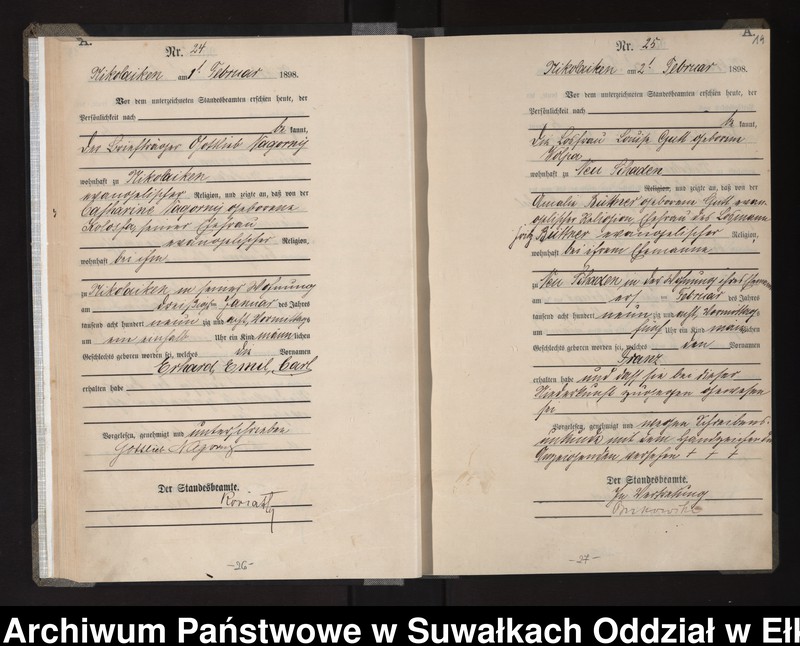 A.
Nr. 24
Nikolaiken am 1t Februar 1898.
Vor dem unterzeichneten Standesbeamten erschien heute, der
Persönlichkeit nach
be kannt,
der Briefträger Gottlieb Nagorny
wohnhaft zu Nikolaiken
evangelischer Religion, und zeigte an, daß von der
Catharine Nagorny geborene
seiner Ehefrau
evangelischer Religion,
wohnhaft bei ihm
zu Nikolaiken, in seiner Wohnung
am dreißigsten Januar des Jahres
tausend acht hundert neun zig und acht, Vormittags
um ein einhalb Uhr ein Kind männlichen
Geschlechts geboren worden sei, welches die Vornamen
Erhard, Emil, Carl
erhalten habe
Vorgelesen, genehmigt und unterschrieben
Gottlieb Nagorny
Der Standesbeamte.
Koriath
-26-
A.
19
Nr. 25
Nikolaiken am 2t Februar 1898.
Vor dem unterzeichneten Standesbeamten erschien heute, der
Persönlichkeit nach
be kannt,
die Losfrau Louise Gutt geborene
wohnhaft zu Neu Schaden
Religion, und zeigte an, daß von der
Amalie Büttner geborene Gutt evan-
gelischer Religion Ehefrau des Losmanns
Fritz Büttner evangelischer Religion,
wohnhaft bei ihrem Ehemanne
zu Neu Schaden, in der Wohnung ihres Ehemannes
am ersten Februar des Jahres
tausend acht hundert neun zig und acht, Vormittags
um fünf Uhr ein Kind männlichen
Geschlechts geboren worden sei, welches den Vornamen
Franz
erhalten habe und daß sie bei dieser
Niederkunft zugegen gewesen
sei
Vorgelesen, genehmigt und wegen Schreibens-
unkunde mit dem Handzeichen der
Anzeigenden versehen + + +
Der Standesbeamte.
In Vertretung
-27-
Archiwum Państwowe w Suwałkach Oddział w Ełk